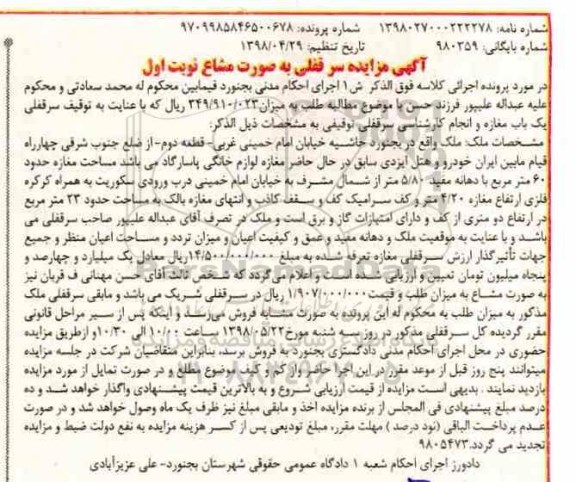 شماره نامه: ۱۳۹۸۰۲۷۰۰۰۲۲۲۲۷۸ شماره پرونده: ۹۷۰۹۹۸۵۸۴۶۵۰۰۶۷۸
شماره بایگانی: ۹۸۰۳۵۹ تاریخ تنظیم: ۱۳۹۸/۰۴/۲۹
آگهی مزایده سر قفلی به صورت مشاع نوبت اول
در مورد پرونده اجرائی کلاسه فوق الذکر ش۱ اجرای احکام مدنی بجنورد فیمابین محکوم له محمد سعادتی و محکوم
علیه عبداله علیپور فرزند حسن با موضوع مطالبه طلب به میزان۲۴۹/۹۱۰/۰۲۳ ریال که با عنایت به توقیف سرقفلی
یک باب مغازه و انجام کارشناسی سرقفلی توقیفی به مشخصات ذیل الذکر:
مشخصات ملک: ملک واقع در بجنورد خیابان امام خمینی غربی- قطعه دوم- از ضلع جنوب شرقی چهارراه
قیام مابین ایران خودرو و هتل ایزدی سابق در حال حاضر مغازه لوازم خانگی پاسارگاد می باشد مساحت مغازه حدود
۶۰ متر مربع با دهانه مفید ۵/۸۰ متر از شمال مشرف به خیابان امام خمینی درب ورودی سکوریت به همراه کرکره
فلزی ارتفاع مغازه ۴/۲۰ متر و کف سرامیک کف و سقف کاذب و انتهای مغازه بالک به مساحت حدود ۲۳ متر مربع
در ارتفاع دو متری از کف و دارای امتیازات گاز و برق است و ملک در تصرف آقای عبداله علیپور صاحب سرقفلی می
باشد و با عنایت به موقعیت ملک و دهانه مفید و عمق و کیفیت اعیان و میزان تردد و مساحت اعیان منظر و جمیع
جهات تأثیرگذار ارزش سرقفلی مغازه تعرف شده به مبلغ ۱۴/۵۰۰/۰۰۰/۰۰۰ریال معادل یک میلیارد و چهارصد و
پنجاه میلیون تومان تعیین و ارزیابی شده است و اعلام می‌گردد که شخص ثالث آقای حسن مهنانی ف قربان نیز
به صورت مشاع به میزان طلب و قیمت ۱/۹۰۷/۰۰۰/۰۰۰ ریال در سرقفلی شریک می باشد و مابقی سرقفلی ملک
مذکور به میزان طلب به محکوم له این پرونده به صورت مشابه فروش می‌رسد و اینکه پس از سیر مراحل قانونی
مقرر گردیده کل سرقفلی مذکور در روز سه شنبه مورخ۱۳۹۸/۰۵/۲۲ ساعت ۱۰/۰۰ الی ۱۰/۳۰و ازطریق مزایده
حضوری در محل اجرای احکام مدنی دادگستری بجنورد به فروش برسد، بنابراین متقاضیان شرکت در جلسه مزایده
میتوانند پنج روز قبل از موعد مقرر در این اجرا حاضر و از کم و کیف موضوع مطلع و در صورت تمایل از مورد مزایده
بازدید نمایند . بدیهی است مزایده از قیمت ارزیابی شروع و به بالاترین قیمت پیشنهادی واگذار خواهد شد و ده
درصد مبلغ پیشنهادی فی المجلس از برنده مزایده اخذ و مابقی مبلغ نیز ظرف یک ماه وصول خواهد شد و در صورت
عدم پرداخت الباقی (نود درصد ) مهلت مقرر، مبلغ تودیعی پس از کسر هزینه مزایده به نفع دولت ضبط و مزایده
تجدید می گردد.۹۸۰۵۴۷۳
دادورز اجرای احکام شعبه ۱ دادگاه عمومی حقوقی شهرستان بجنورد- علی عزیزآبادی